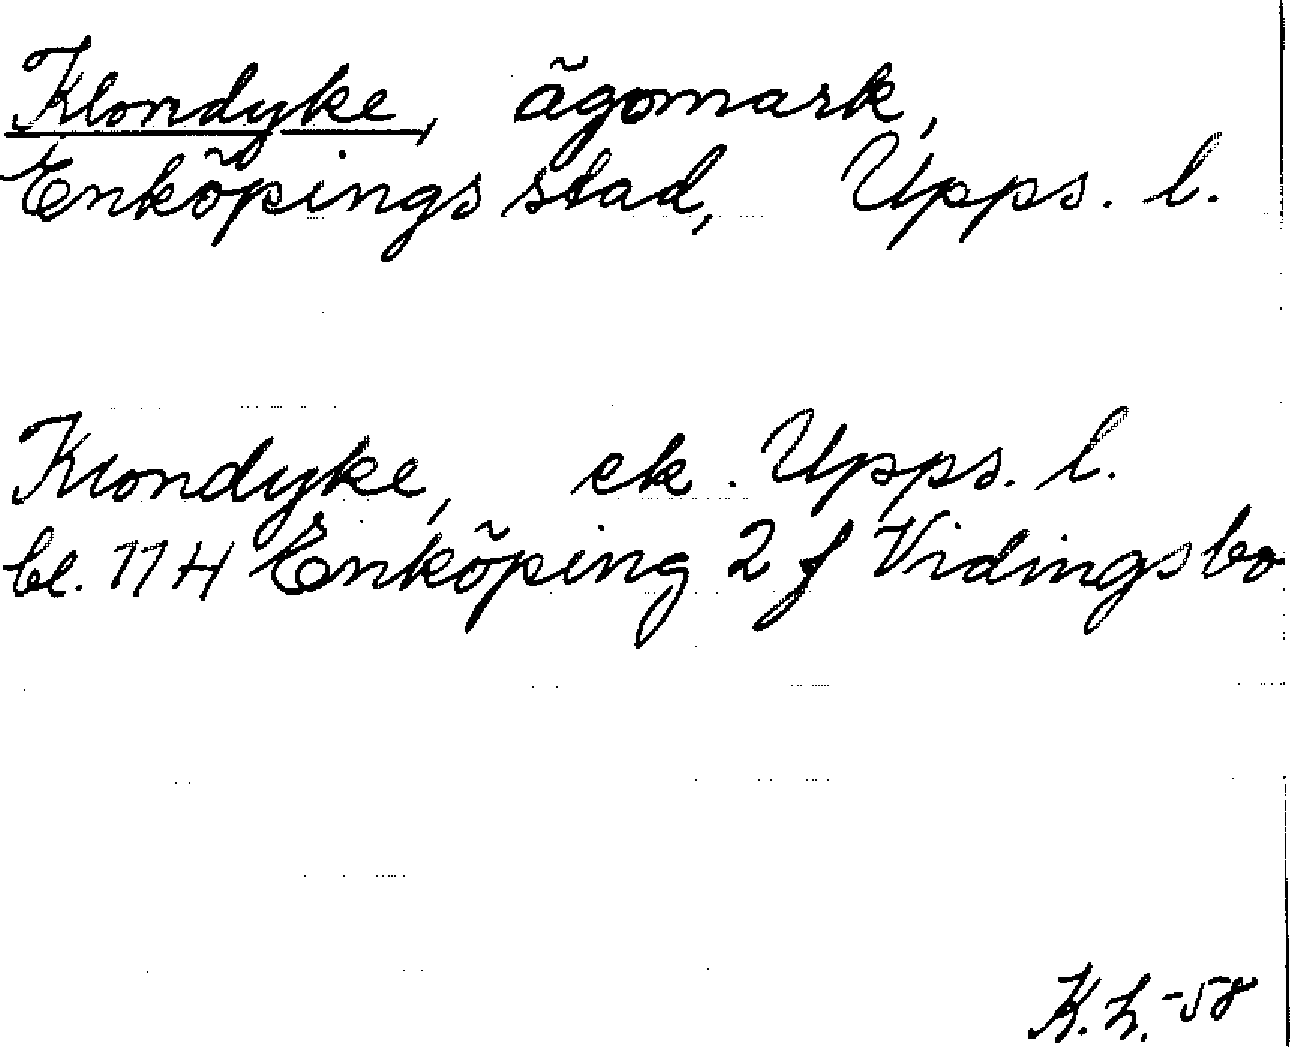 Klondyke, ägomark,
Enköpings stad, Upps. l.
Klondyke, ek. Upps. l.
bl. 114 Enköping 2 f Vidingsbo
K. L. -58